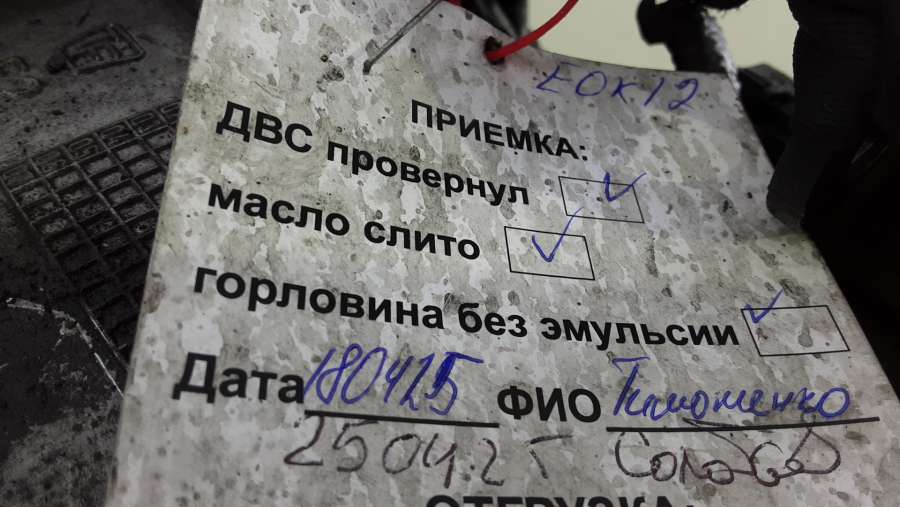 ЕОК12
ПРИЕМКА:
ДВС провернул
масло слито
горловина без эмульсии
Дата 180425 ФИО Тиможенко
25 04.25
ОТГРУЗКА: